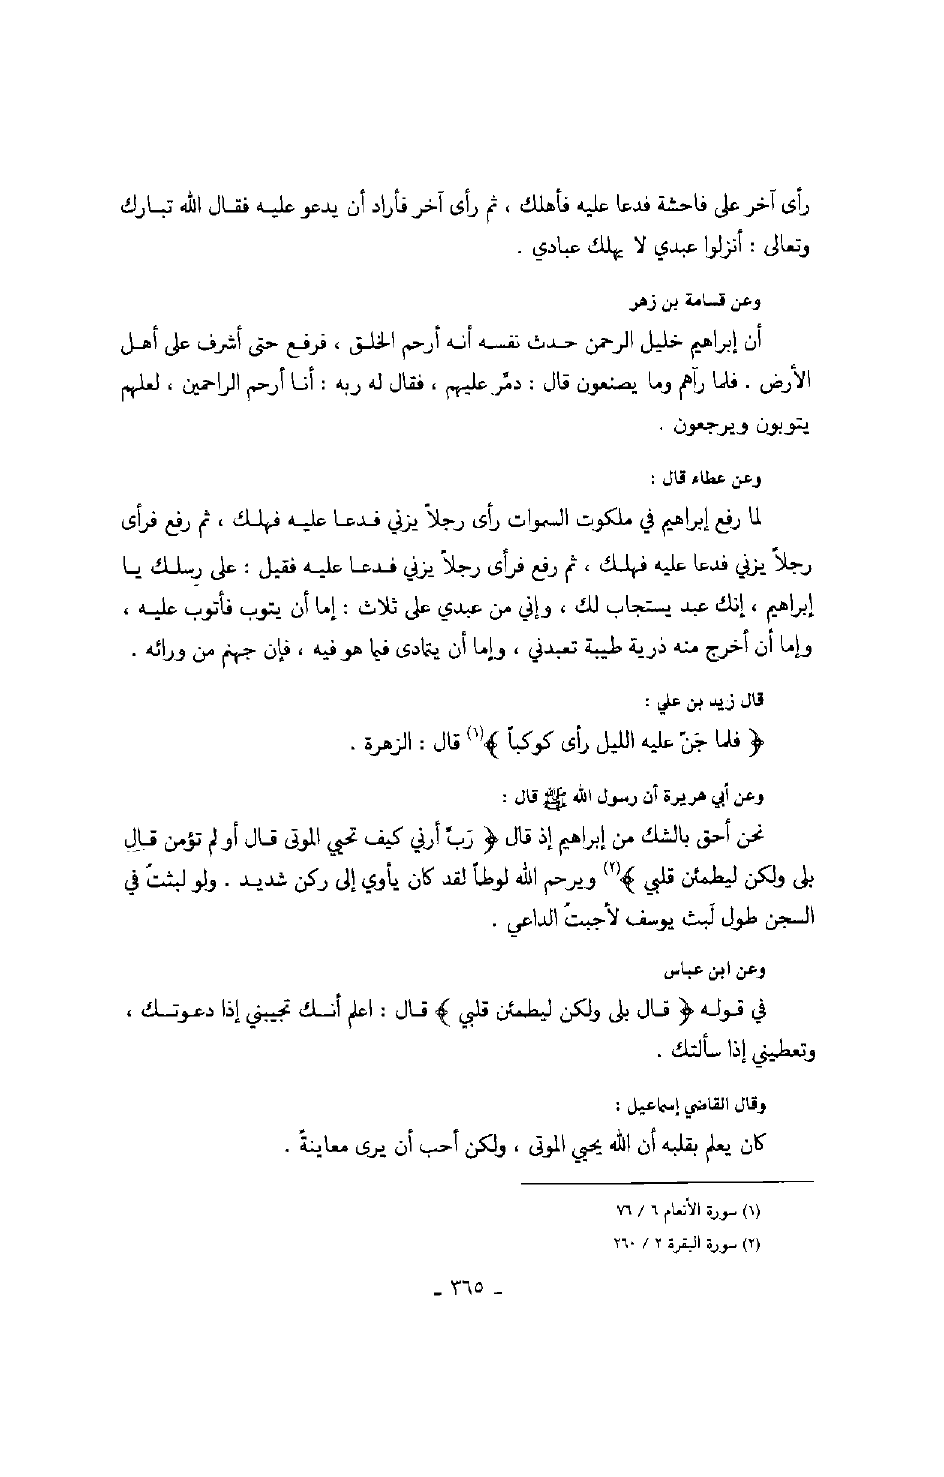 رأى آخر على فاحشة فدعا عليه فأهلك ، ثم رأى آخر فأراد أن يدعو عليه فقال الله تبارك
وتعالى : أنزلوا عبدي لا يهلك عبادي .
وعن قسامة بن زهر
أن إبراهيم خليل الرحمن حدث نفسه أنه أرحم الخلق ، فرفع حتى أشرف على أهل
الأرض . فلما رآهم وما يصنعون قال : دمّر عليهم ، فقال له ربه : أنا أرحم الراحمين ، لعلهم
يتوبون ويرجعون .
وعن عطاء قال :
لما رفع إبراهيم في ملكوت السموات رأى رجلاً يزني فدعا عليه فهلك ، ثم رفع فرأى
رجلاً يزني فدعا عليه فهلك ، ثم رفع فرأى رجلاً يزني فدعا عليه فقيل : على رسلك يا
إبراهيم ، إنك عبد يستجاب لك ، وإني من عبدي على ثلاث : إما أن يتوب فأتوب عليه ،
وإما أن أخرج منه ذرية طيبة تعبدني ، وإما أن يتمادى فيما هو فيه ، فإن جهنم من ورائه .
قال زيد بن علي :
﴿ فلما جَنّ عليه الليل رأى كوكباً ﴾(١) قال : الزهرة .
وعن أبي هريرة أن رسول الله ﷺ قال :
نحن أحق بالشك من إبراهيم إذ قال ﴿ رَبِّ أرني كيف تحيي الموتى قال أو لم تؤمن قال
بلى ولكن ليطمئن قلبي ﴾(٢) ويرحم الله لوطاً لقد كان يأوي إلى ركن شديد . ولو لبثتُ في
السجن طول لَبث يوسف لأجبتُ الداعي .
وعن ابن عباس
في قوله ﴿ قال بلى ولكن ليطمئن قلبي ﴾ قال : اعلم أنك تجيبني إذا دعوتك ،
وتعطيني إذا سألتك .
وقال القاضي إسماعيل :
كان يعلم بقلبه أن الله يحيي الموتى ، ولكن أحب أن يرى معاينةً .
(١) سورة الأنعام ٦ / ٧٦
(٢) سورة البقرة ٢ / ٢٦٠
- ٣٦٥ -